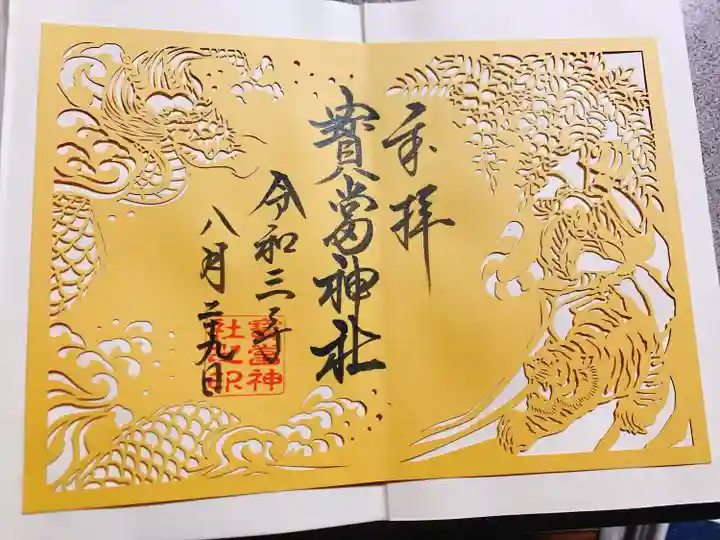 奉拝
寳當神社
令和三年
八月二十九日
寳當神
社之印